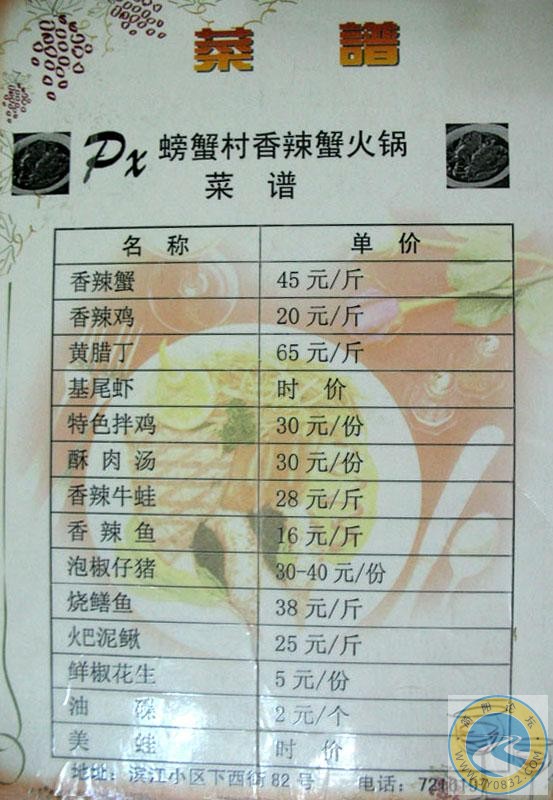 菜 譜
Px 螃蟹村香辣蟹火锅
菜 谱
名 称 单 价
香辣蟹 45 元/斤
香辣鸡 20 元/斤
黄腊丁 65 元/斤
基尾虾 时 价
特色拌鸡 30 元/份
酥 肉 汤 30 元/份
香辣牛蛙 28 元/斤
香 辣 鱼 16 元/斤
泡椒仔猪 30-40 元/份
烧鳝鱼 38 元/斤
火巴泥鳅 25 元/斤
鲜椒花生 5 元/份
油 碟 2 元/个
美 蛙 时 价
地址：滨江小区下西街 82 号 电话：